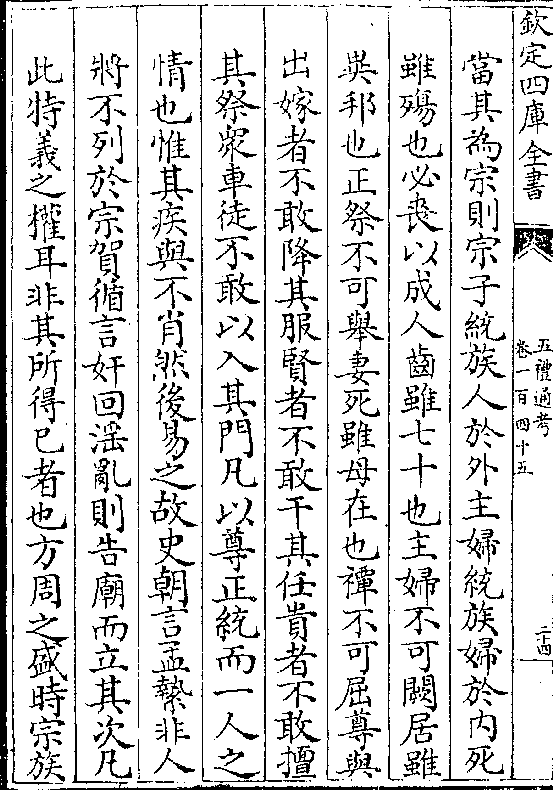 欽定四庫全書
五禮通考
卷一百四十五
二十四
當其為宗則宗子統族人於外主婦統族婦於内死
雖殤也必喪以成人齒雖七十也主婦不可闕居雖
異邦也正祭不可舉妻死雖母在也禫不可屈尊與
出嫁者不敢降其服賢者不敢干其任貴者不敢擅
其祭衆車徒不敢以入其門凡以尊正統而一人之
情也惟其疾與不肖然後易之故史朝言孟縶非人
將不列於宗賀循言奸回淫亂則告廟而立其次凡
此特義之權耳非其所得已者也方周之盛時宗族